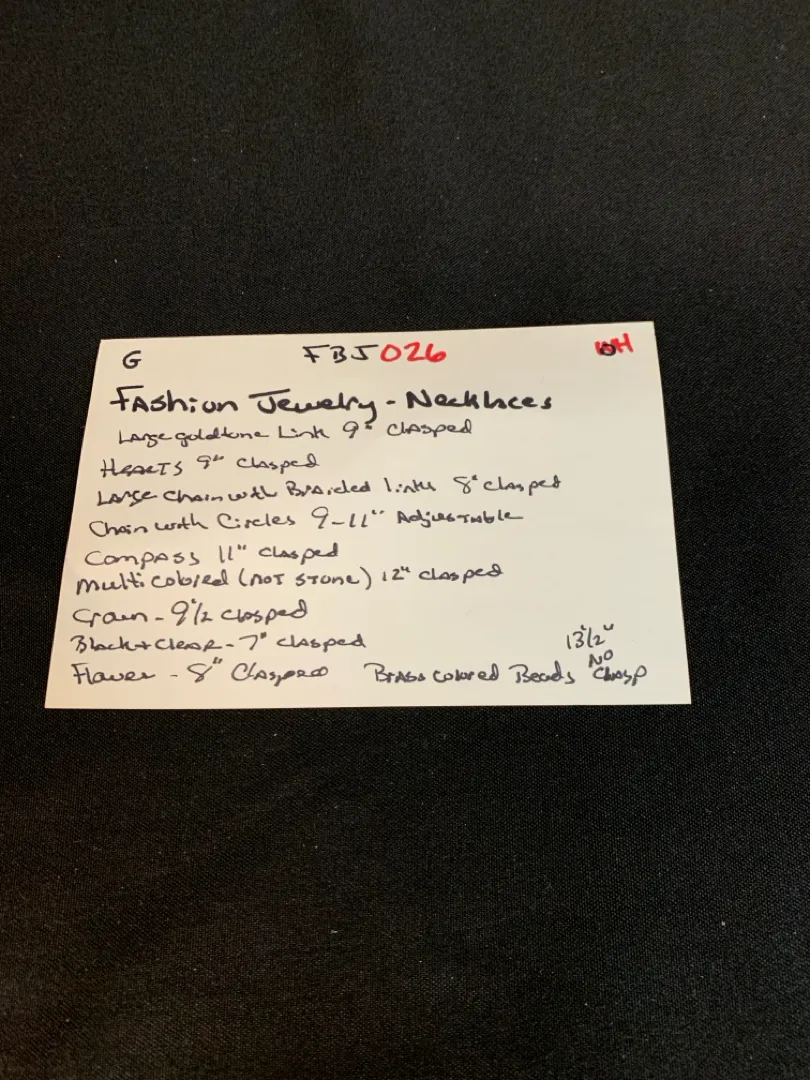 G FBJ026 WH
Fashion Jewelry - Necklaces
Large goldtone Link 9" Clasped
Hearts 9" Clasped
Large Chain with Braided links 8" clasped
Chain with Circles 9-11" Adjustable
Compass 11" clasped
Multi colored (not stone) 12" clasped
9 1/2 clasped
Black + Clear - 7" clasped
Flower - 8" Clasped Brass colored Beads 13 1/2" NO Clasp